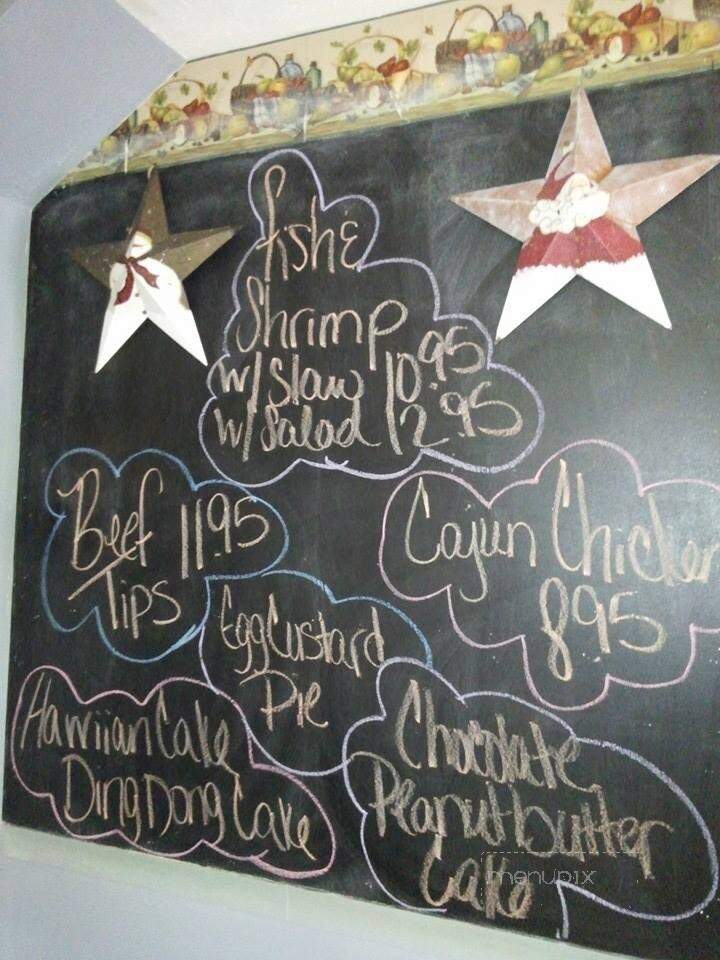 fish &
Shrimp
w/ Slaw 10.95
w/ Salad 12.95
Beef 11.95
Tips
Cajun Chicken
8.95
Egg Custard
Pie
Hawiian Cake
Ding Dong Cake
Chocolate
Peanutbutter
Cake
menupix